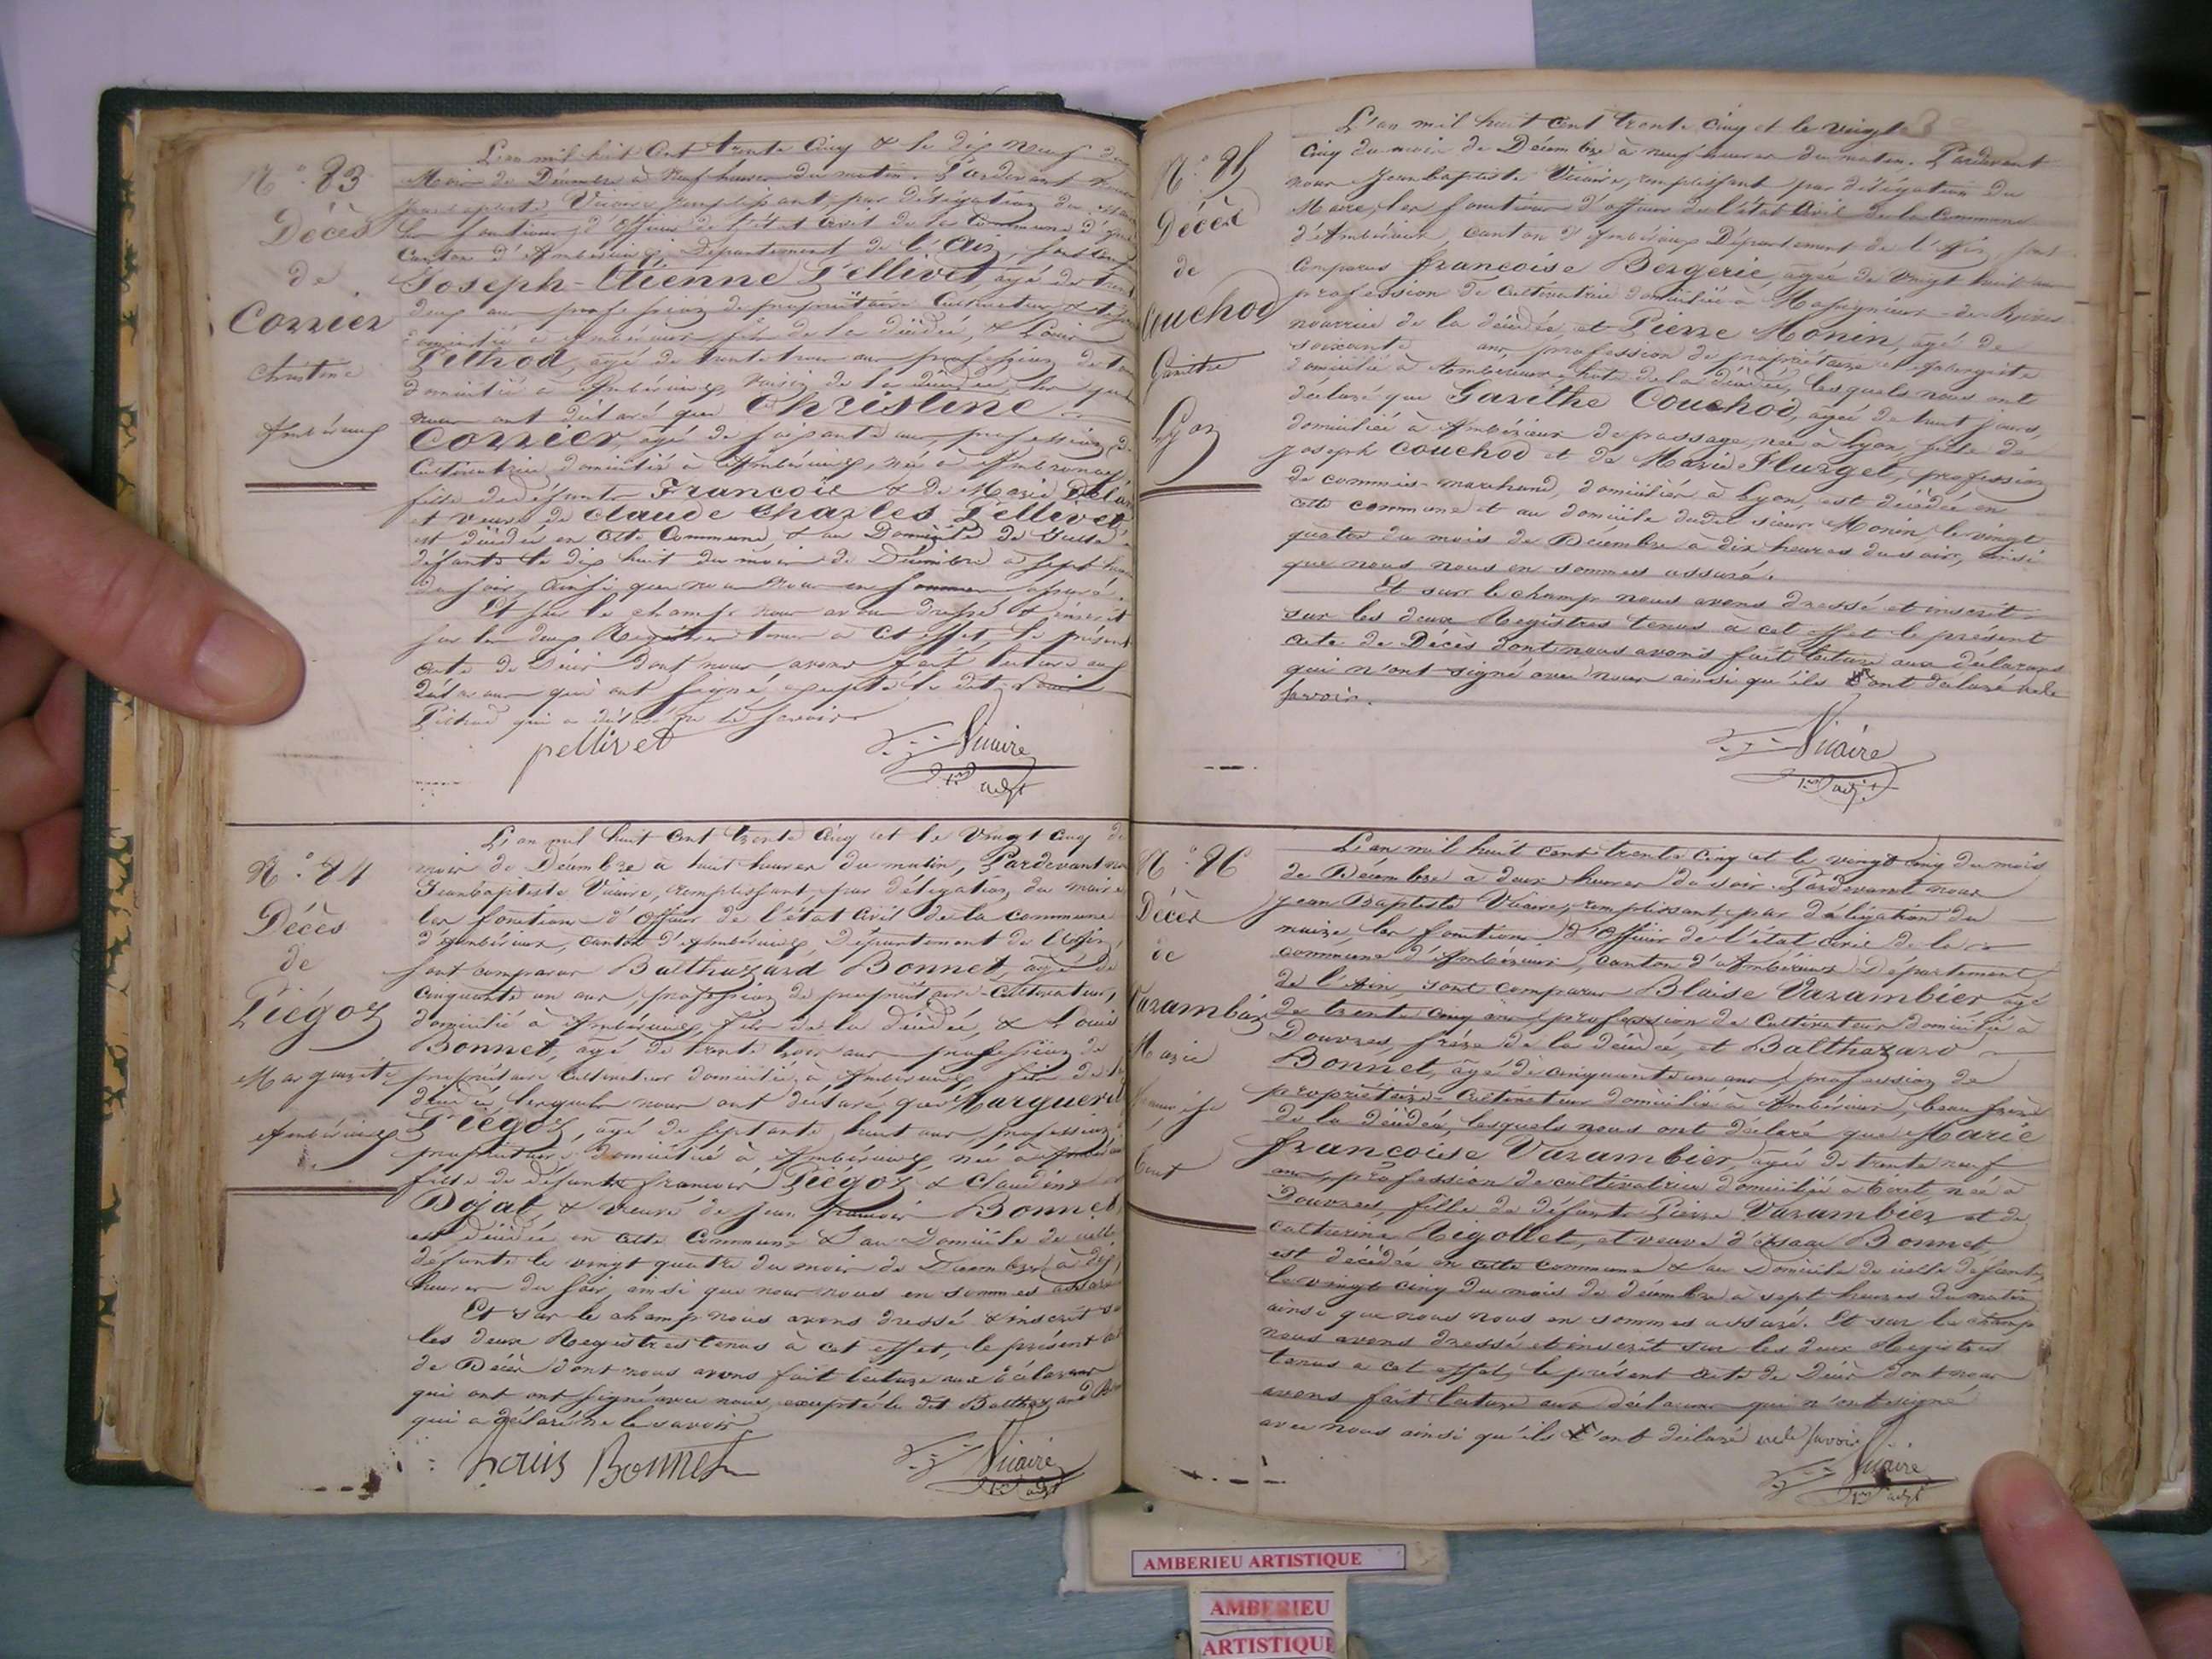 N.° 83
Décès
de
Corrier
Christine
Ambérieux
L'an mil huit Cent trente Cinq & le dix neuf du
Mois de Décembre à Neuf heures du matin. Pardevant Nous
Jean baptiste Vicaire remplissant, par délégation du Maire
les fonctions d'Officier de l'état Civil de la Commune d'
Canton d'Ambérieux, Département de l'Ain, sont
Joseph-Etienne Pellivet, âgé de trente
deux ans profession de propriétaire Cultivateur &
domicilié à Ambérieux fils de la décédée, & Louis
Pithod, âgé de trente trois ans profession de
domicilié à Ambérieux, voisin de la décédée les quels
nous ont déclaré que Christine
Corrier, âgé de soixante ans, profession de
Cultivatrice domiciliée à Ambérieux, née à Ambronay
fille de défunts François & de Marie
et veuve de Claude Charles Pellivet
est décédée en Cette Commune & au Domicile de
défunte le dix huit du mois de Décembre à sept heures
du soir, ainsi que nous nous en sommes assuré.
Et sur le champ nous avons dressé & inscrit
sur les deux Registres tenus à Cet effet le présent
acte de Décès dont nous avons fait lecture aux
déclarans qui ont signé excepté le dit Louis
Pithod qui a déclaré ne le savoir
pellivet
Vicaire
1er adjt
N.° 84
Décès
de
Piégoz
Marguerite
Ambérieux
L'an mil huit Cent trente Cinq et le Vingt Cinq du
mois de Décembre à huit heures du matin, Pardevant nous
Jeanbaptiste Vicaire, remplissant, par délégation du maire
les fonctions d'Officier de l'état Civil de la commune
d'Ambérieux, canton d'Ambérieux, Département de l'Ain,
sont comparus Balthazard Bonnet, âgé de
cinquante un ans, profession de propriétaire-cultivateur,
domicilié à Ambérieux, fils de la décédée, & Louis
Bonnet, âgé de trente trois ans profession de
propriétaire Cultivateur domicilié à Ambérieux fils de la
décédée lesquels nous ont déclaré que Marguerite
Piégoz, âgé de septante huit ans, profession
propriétaire domiciliée à Ambérieux née à
fille de défunts François Piégoz & Claudine
Dojat & veuve de Jean François Bonnet,
est décédée en cette Commune & au Domicile de cette
défunte le vingt quatre du mois de Décembre à dix
heures du soir, ainsi que nous nous en sommes assuré
Et sur le champ nous avons dressé & inscrit sur
les deux Registres tenus à cet effet, le présent acte
de Décès dont nous avons fait lecture aux déclarans
qui ont ont signé avec nous, excepté le dit Balthazard
qui a déclaré ne le savoir
Louis Bonnet
Vicaire
1er adjt
N.° 85
Décès
de
Couchod
Garithe
Lyon
L'an mil huit Cent trente Cinq et le vingt
Cinq du mois de Décembre à neuf heures du matin. Pardevant
nous Jeanbaptiste Vicaire, remplissant par délégation du
Maire, les fonctions d'officier de l'état Civil de la Commune
d'Ambérieux, canton d'Ambérieux Département de l'Ain, sont
Comparus Françoise Bergerie, âgée de vingt huit ans
profession de Cultivatrice domiciliée à
nourrice de la décédée et Pierre Monin, âgé de
soixante ans, profession de propriétaire et Aubergiste
domicilié à Ambérieux, hôte de la décédée, lesquels nous ont
déclaré que Garithe Couchod, âgée de huit jours,
domiciliée à Ambérieux de passage, née à Lyon, fille de
Joseph Couchod et de Marie Flurget, profession
de commis-marchand, domiciliés à Lyon, est décédée en
cette commune et au domicile dudit sieur Monin, le vingt
quatre du mois de Décembre à dix heures du soir, ainsi
que nous nous en sommes assuré.
Et sur le champ nous avons dressé et inscrit
sur les deux Registres tenus à cet effet le présent
acte de Décès dont nous avons fait lecture aux déclarans
qui n'ont signé avec nous ainsi qu'ils l'ont déclaré ne le
savoir.
Vicaire
1er adjt
N.° 86
Décès
de
Varambier
Marie
françoise
L'an mil huit cent trente cinq et le vingt cinq du mois
de Décembre à deux heures du soir. Pardevant nous
Jean Baptiste Vicaire, remplissant, par délégation du
maire, les fonctions d'Officier de l'état civil de la
commune d'Ambérieux, canton d'Ambérieux Département
de l'Ain, sont comparus Blaise Varambier, âgé
de trente cinq ans profession de Cultivateur domicilié à
Douvres, frère de la décédée, et Balthazard
Bonnet, âgé de cinquante un ans, profession de
propriétaire-Cultivateur domicilié à Ambérieux, beau frère
de la décédée, lesquels nous ont déclaré que Marie
Françoise Varambier, âgée de trente neuf
ans, profession de cultivatrice domiciliée à née à
Douvres, fille de défunts Pierre Varambier et de
Catherine Rigollet, et veuve d'Isaac Bonnet,
est décédée en cette commune & au Domicile de cette défunte,
le vingt cinq du mois de décembre à sept heures du matin
ainsi que nous nous en sommes assuré. Et sur le champ
nous avons dressé et inscrit sur les deux Registres
tenus à cet effet, le présent acte de Décès dont nous
avons fait lecture aux déclarans qui n'ont signé
avec nous ainsi qu'ils l'ont déclaré ne le savoir
Vicaire
1er adjt
AMBERIEU ARTISTIQUE
AMBERIEU
ARTISTIQUE